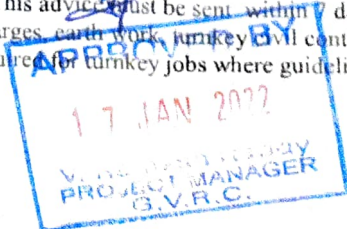 his advice must be sent within 7 d
arges, earth work, turnkey civil cont
uired for turnkey jobs where guideli
APPROVED BY
17 JAN 2022
PROJECT MANAGER
G.V.R.C.